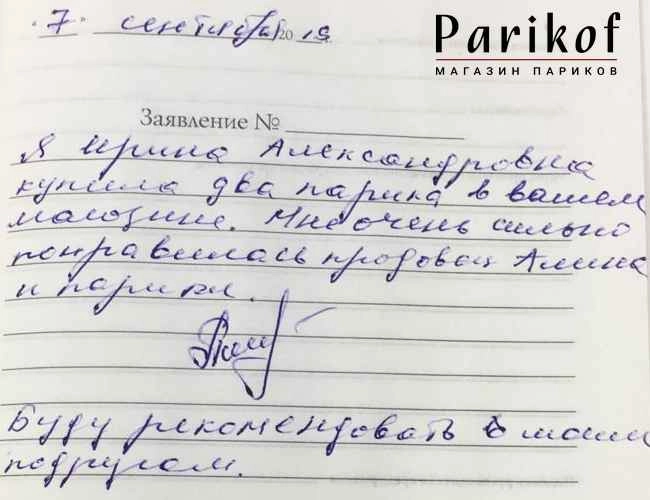 Parikof
МАГАЗИН ПАРИКОВ
7 сентября 2019
Заявление №
Я Ирина Александровна
купила два парика в вашем
магозине. Мне очень сильно
понравилась продовец Алина
и парики.
Буду рекомендовать своим
подругам.